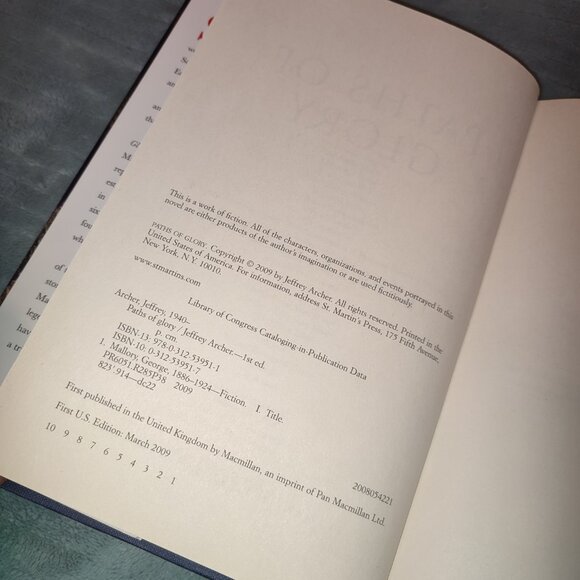 This is a work of fiction. All of the characters, organizations, and events portrayed in this
novel are either products of the author's imagination or are used fictitiously.
PATHS OF GLORY. Copyright © 2009 by Jeffrey Archer. All rights reserved. Printed in the
United States of America. For information, address St. Martin's Press, 175 Fifth Avenue,
New York, N.Y. 10010.
www.stmartins.com
Library of Congress Cataloging-in-Publication Data
Archer, Jeffrey, 1940–
Paths of glory / Jeffrey Archer.—1st ed.
p. cm.
ISBN-13: 978-0-312-53951-1
ISBN-10: 0-312-53951-7
1. Mallory, George, 1886–1924—Fiction. I. Title.
PR6051.R285P38 2009
823'.914—dc22
2008054221
First published in the United Kingdom by Macmillan, an imprint of Pan Macmillan Ltd.
First U.S. Edition: March 2009
10 9 8 7 6 5 4 3 2 1